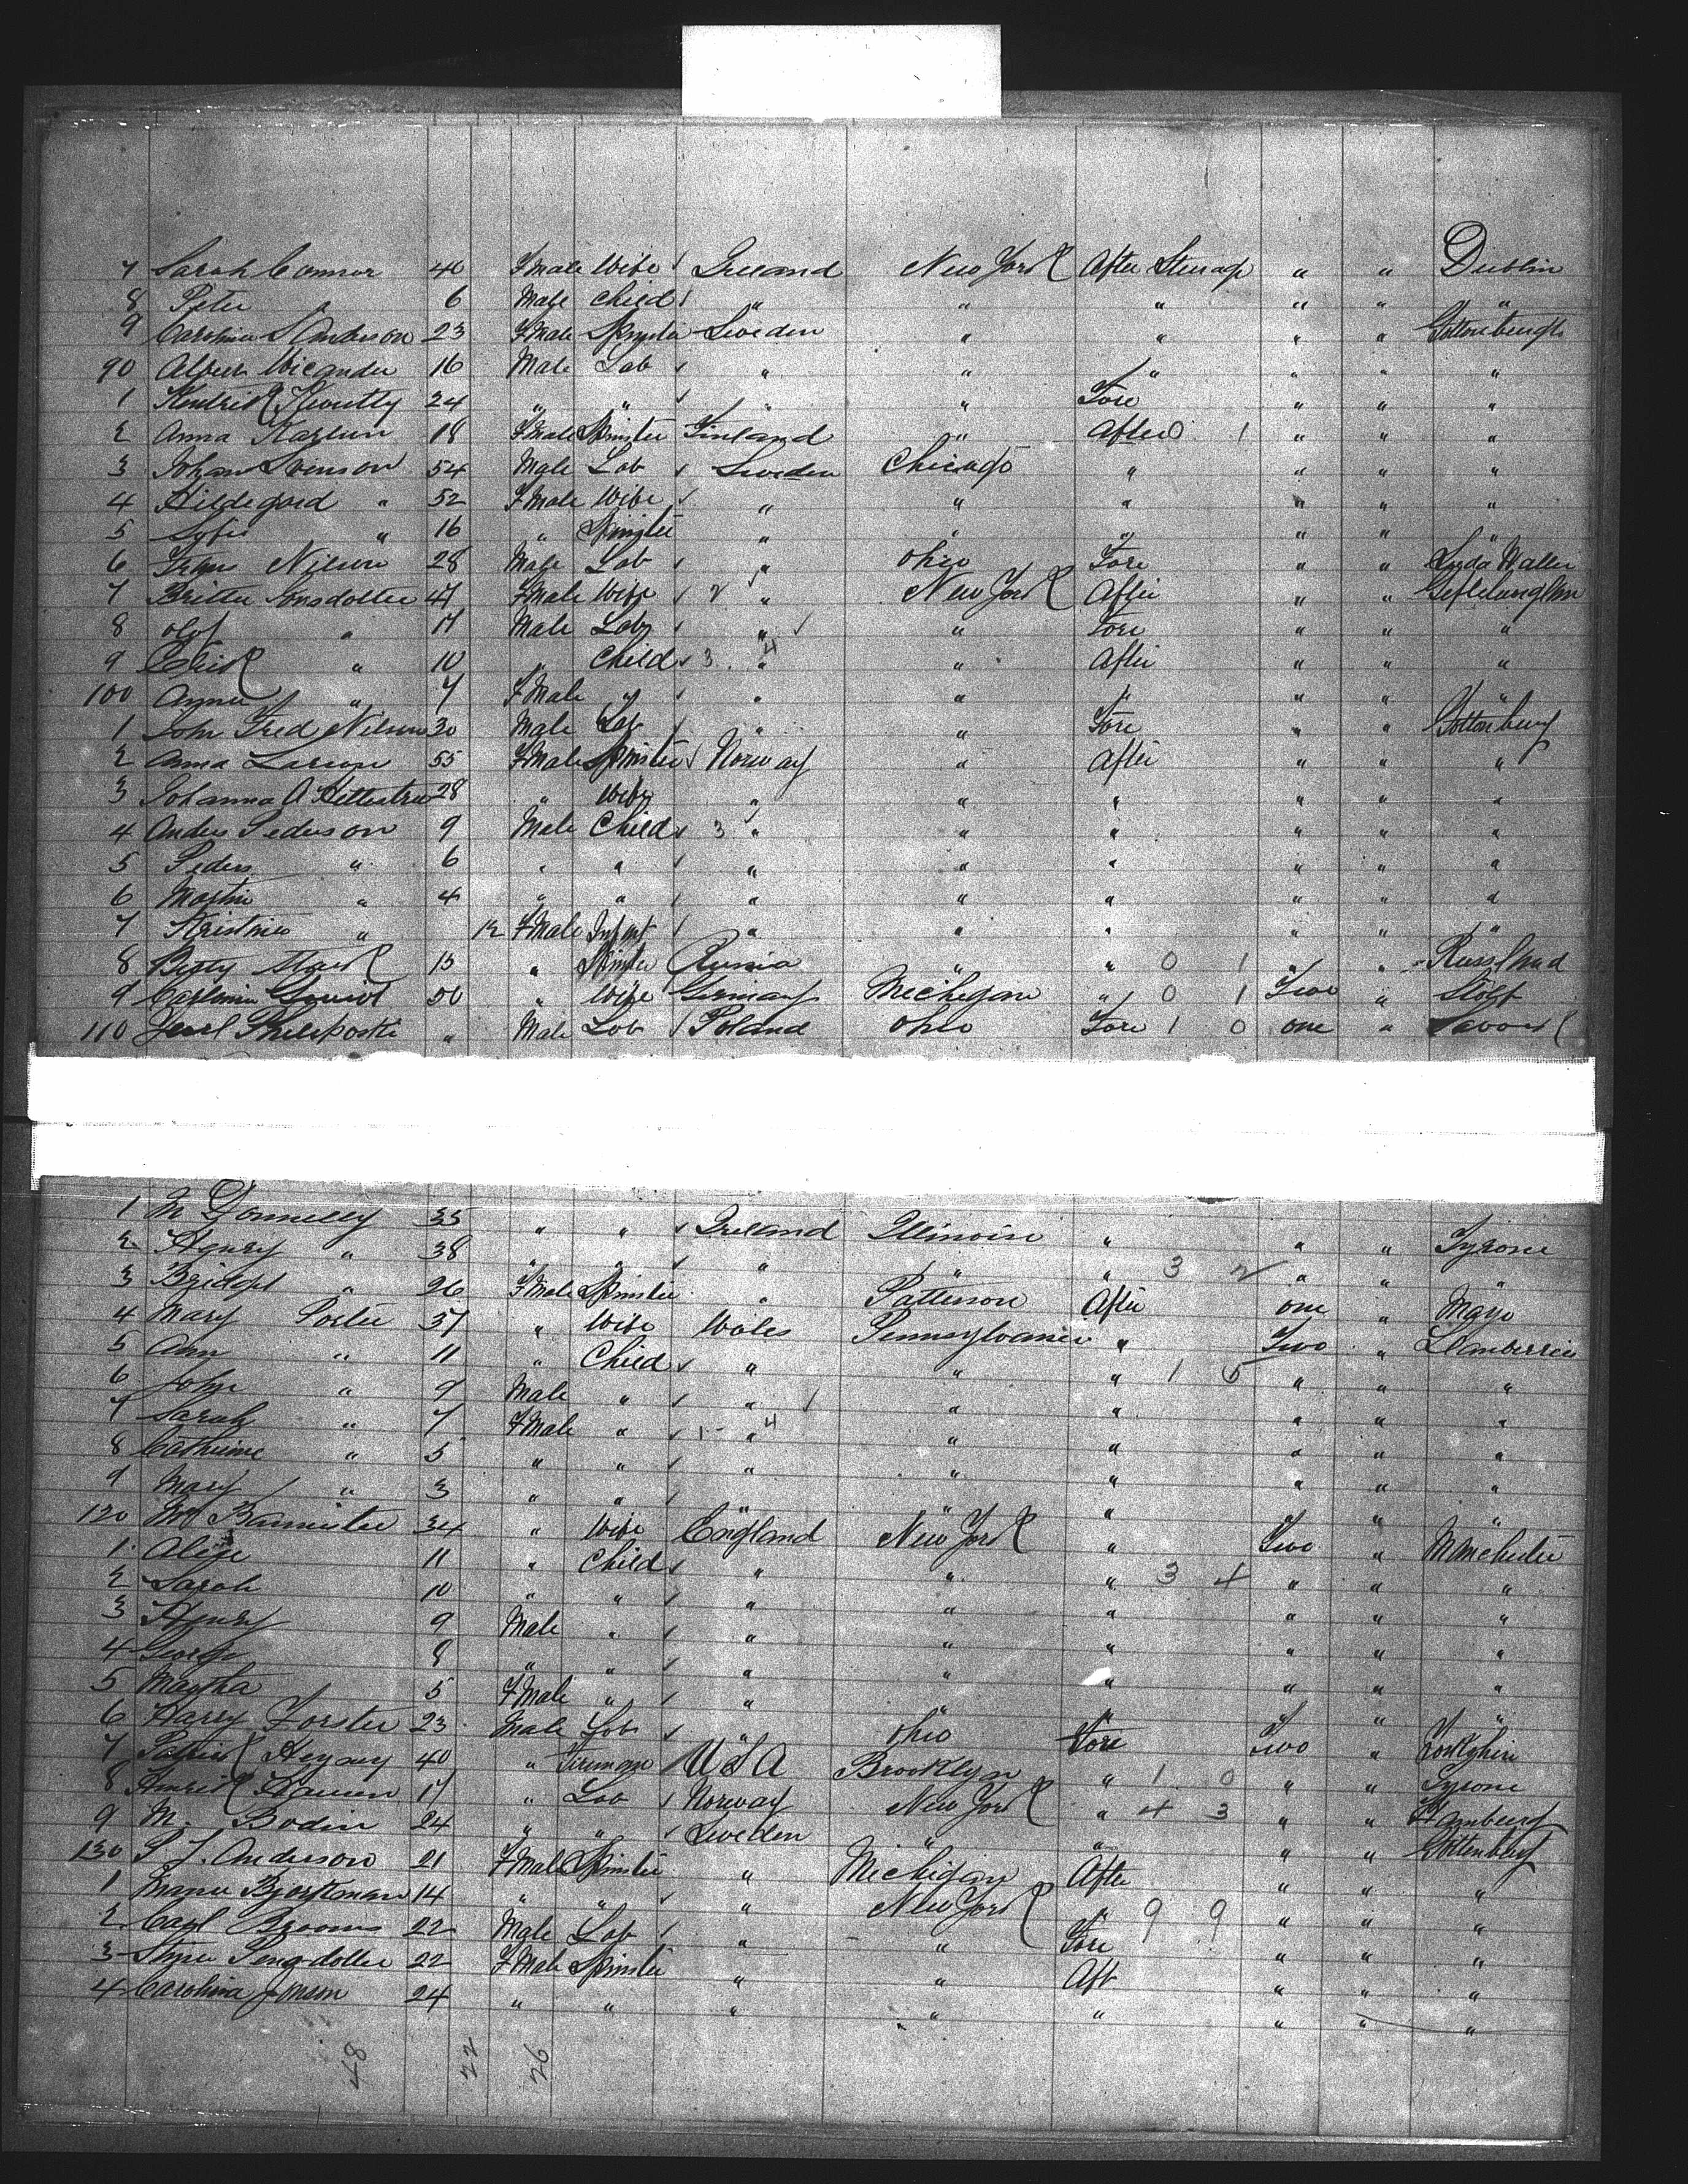 7 Sarah Connor 40 F Male Wife Ireland New York After Steerage " " Dublin
8 Peter " 6 Male Child " " " " " "
9 Carolina S Anderson 23 F Male Spinster Sweden " " " " Gottenburgh
90 Albert Wicander 16 Male Lab " " " " " "
1 24 " " " " Fore " " "
2 Anna 18 F Male Spinster Finland " After 0 1 " " "
3 Johan Svenson 54 Male Lab Sweden Chicago " " " "
4 Hildegard " 52 F Male Wife " " " " " "
5 Sofia " 16 " Spinster " " " " " "
6 Nilson 28 Male Lab " Ohio Fore " "
7 Britta 47 F Male Wife 2 " New York After " "
8 Olof " 17 Male Lab " " Fore " " "
9 Erick " 10 " Child 3 4 " " After " " "
100 Anna " 7 F Male " " " " " " "
1 John Fred Nilson 30 Male Lab " " Fore " " Gottenburg
2 Anna Larson 55 F Male Spinster Norway " After " " "
3 Johanna A 28 " Wife " " " " " "
4 Anders Pederson 9 Male Child 3 " " " " " "
5 Peders " 6 " " " " " " " "
6 Martin " 4 " " " " " " " "
7 Kristina " 12 F Male Infant " " " " " "
8 Betty 15 " Spinster Russia " " 0 1 " " Russland
9 50 " Wife Germany Michigan " 0 1 Two "
110 " Male Lab Poland Ohio Fore 1 0 one "
1 M Donnelly 35 " " Ireland Illinois " " " Tyrone
2 Henry " 38 " " " " " 3 2 " " "
3 Bridget " 26 F Male Spinster " Patterson After one " Mayo
4 Mary Porter 37 " Wife Wales Pennsylvania " Two " Llanberris
5 Ann " 11 " Child " " " 1 5 " " "
6 John " 9 Male " " " " " " "
7 Sarah " 7 F Male " 1 4 " " " " " "
8 Catherine " 5 " " " " " " " "
9 Mary " 3 " " " " " " " "
120 Bannister 34 " Wife England New York " Two " Manchester
1 Alice 11 " Child " " " 3 4 " " "
2 Sarah 10 " " " " " " " "
3 Henry 9 Male " " " " " " "
4 George 8 " " " " " " " "
5 Martha 5 F Male " " " " " " "
6 Harry Forster 23 Male Lab " Ohio Fore Two " Yorkshire
7 Patrick 40 " Fireman U S A Brooklyn " 1 0 " " Tyrone
8 17 " Lab Norway New York " 4 3 " " Hamburg
9 M. Bodin 24 " " Sweden " " " " Gottenburg
130 S J. Anderson 21 F Male Spinster " Michigan After " " "
1 14 " " " New York " 9 9 " " "
2 Carl 22 Male Lab " " Fore " " "
3 22 F Male Spinster " " Aft " " "
4 Carolina Jonson 24 " " " " " " " "
48 22 26